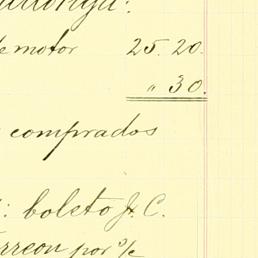 de motor 25.20.
" 30.
comprados
: boleto J. C.
Torreon por o/c